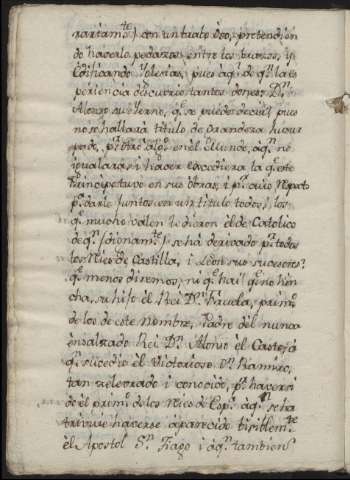 rariam.te) con un trato doso, pretendien
do hacerlo pedazos, entre los brazos, i
Edificando Iglesias, pues aq.n de q.n la es
periencia descubrio tantos dones, D.n
Alonso su Yerno, q.e se puede decir pues
no se hallará titulo de Grandeza
p.a otro algo en el Mundo, aq.n no
igualara, i tiacer excediera la q.e este
Principe tuvo en sus obras, i p.a cuio
p.a darle juntos con un titulo todos, los
q.e mucho valen le dieron el de Catolico
de q.n (dignam.te) se ha derivado p.a todos
los Reies de Castilla, i Leon sus sucesores.
q.e menos diremos, ni q.e hai q.e no hin
cha, su hijo el Rei D.n Fruela, prim.o
de los de este Nombre, Padre del nunca
ensalzado Rei D.n Alonso el Casto, á
q.n sucedio el Victorioso D.n Ramiro,
tan celebrado i conocido, p.r haver si
do el prim.o de los Reies de Esp.a aq.n se ha
haverse aparecido visiblem.te
el Apostol S.n Tiago i aq.n tambien